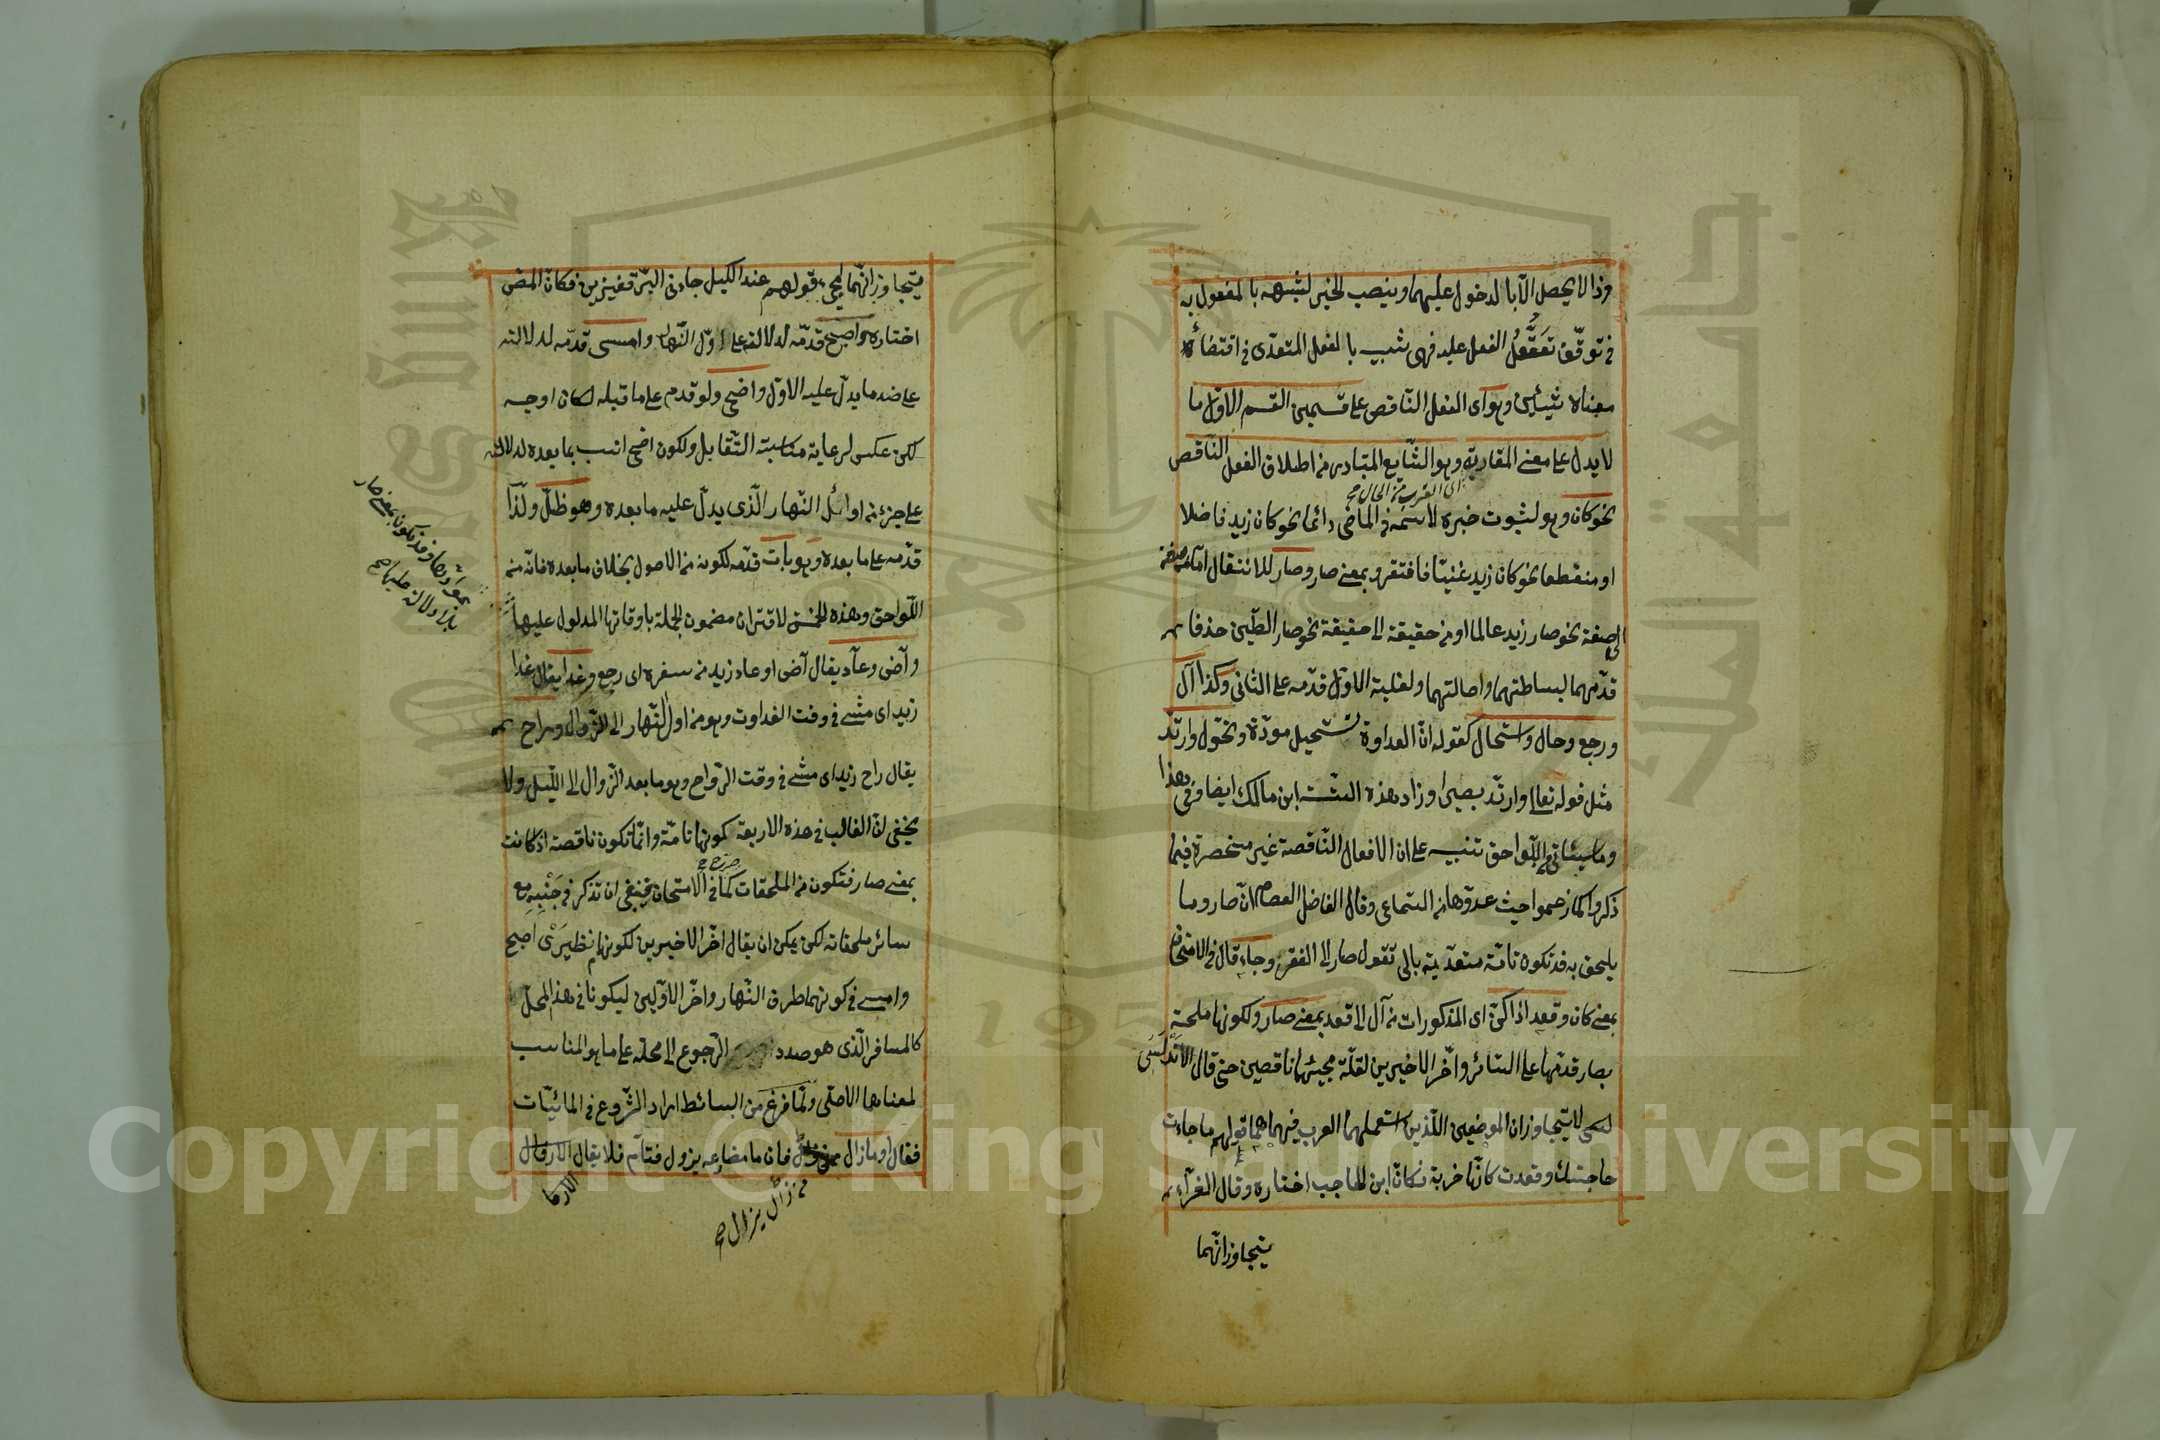 وذا لا يحصل الا بالدخول عليهما وينصب الخبر لشبهه بالمفعول به
في توقف تعقل الفعل عليه فهي شبيه بالفعل المتعدى في اقتضائه
معناه شيئين وهو اى الفعل الناقص على قسمين القسم الاول ما
لا يدل على معنى المقاربة وهو الشايع المتبادر من اطلاق الفعل الناقص
نحو كان وهو لثبوت خبره لاسمه في الماضى دائما نحو كان زيد فاضلا
او منقطعا نحو كان زيد غنيا فافتقر وبمعنى صار وصار للانتقال اما من صفة
الى صفة نحو صار زيد عالما او من حقيقة الى حقيقة نحو صار الطين خذفا
قدمهما لبساطتهما واصالتهما ولغلبة الاول قدمه على الثانى وكذا آل
ورجع وحال واستحال كقوله ان العداوة تستحيل مودة وتحول وارتد
مثل قوله تعالى وارتد بصيرا وزاد هذه الستة ابن مالك ايضا وفي هذا
وما سيئاتى من اللواحق تنبيه على ان الافعال الناقصة غير منحصرة فيما
ذكروا كما زعموا حيث عدوها من السماعى وقال الفاضل العصام ان صار وما
يلحق به قد تكون تامة متعدية بالى تقول صار الى الفقر وجاء قال في الامتحان
بمعنى كان وقعد اذا كن اى المذكورات من آل الى قعد بمعنى صار ولكونها ملحقة
بصار قدمها على السائر واخر الاخيرين لقلة مجيئهما ناقصين حتى قال الاندلسى
لا يتجاوزان الموضعين اللذين استعملهما العرب فيهما هما قولهم ما جاءت
حاجتك وقعدت كانها حربة فكان ابن الحاجب اختاره وقال الفراء
يتجاوزانهما
اى القرب من الحال صح
يتجاوزانهما قولهم عند الكيل جاءنى البر قفيزين فكان المص
اختاره واصبح قدمه لدلالته على اول النهار وامسى قدمه لدلالته
على ضد ما يدل عليه الاول واضحى ولو قدم على ما قبله لكان اوجه
لكن عكس لرعاية مناسبة التقابل ولكون اضحى انسب بما بعده لدلالته
على جزء من اوائل النهار الذى يدل عليه ما بعده وهو ظل ولذا
قدمه على ما بعده وهو بات قدمه لكونه من الاصول بخلاف ما بعده فانه من
اللواحق وهذه الخمس لاقتران مضمون الجملة باوقاتها المدلول عليها
وآض وعاد يقال آض او عاد زيد من سفره اى رجع وغدا يقال غدا
زيد اى مشى في وقت الغداوت وهو من اول النهار الى الزوال وراح
يقال راح زيد اى مشى في وقت الرواح وهو ما بعد الزوال الى الليل ولا
يخفى ان الغالب في هذه الاربعة كونها تامة وانما تكون ناقصة اذا كانت
بمعنى صار فتكون من الملحقات كما في الامتحان فينبغى ان تذكر في جنبه مع
سائر ملحقاته لكن يمكن ان يقال اخر الاخيرين لكونهما نظيرى اصبح
وامسى في كونهما طرفى النهار واخر الاولين ليكونا في هذا المحل
كالمسافر الذى هو صدد الرجوع الى محله على ما هو المناسب
لمعناهما الاصلى ولما فرغ من البسائط اراد الشروع في المائيات
فقال وما زال فان ما مضارعه يزول فتام فلا يقال الا زال
من زال يزال صح